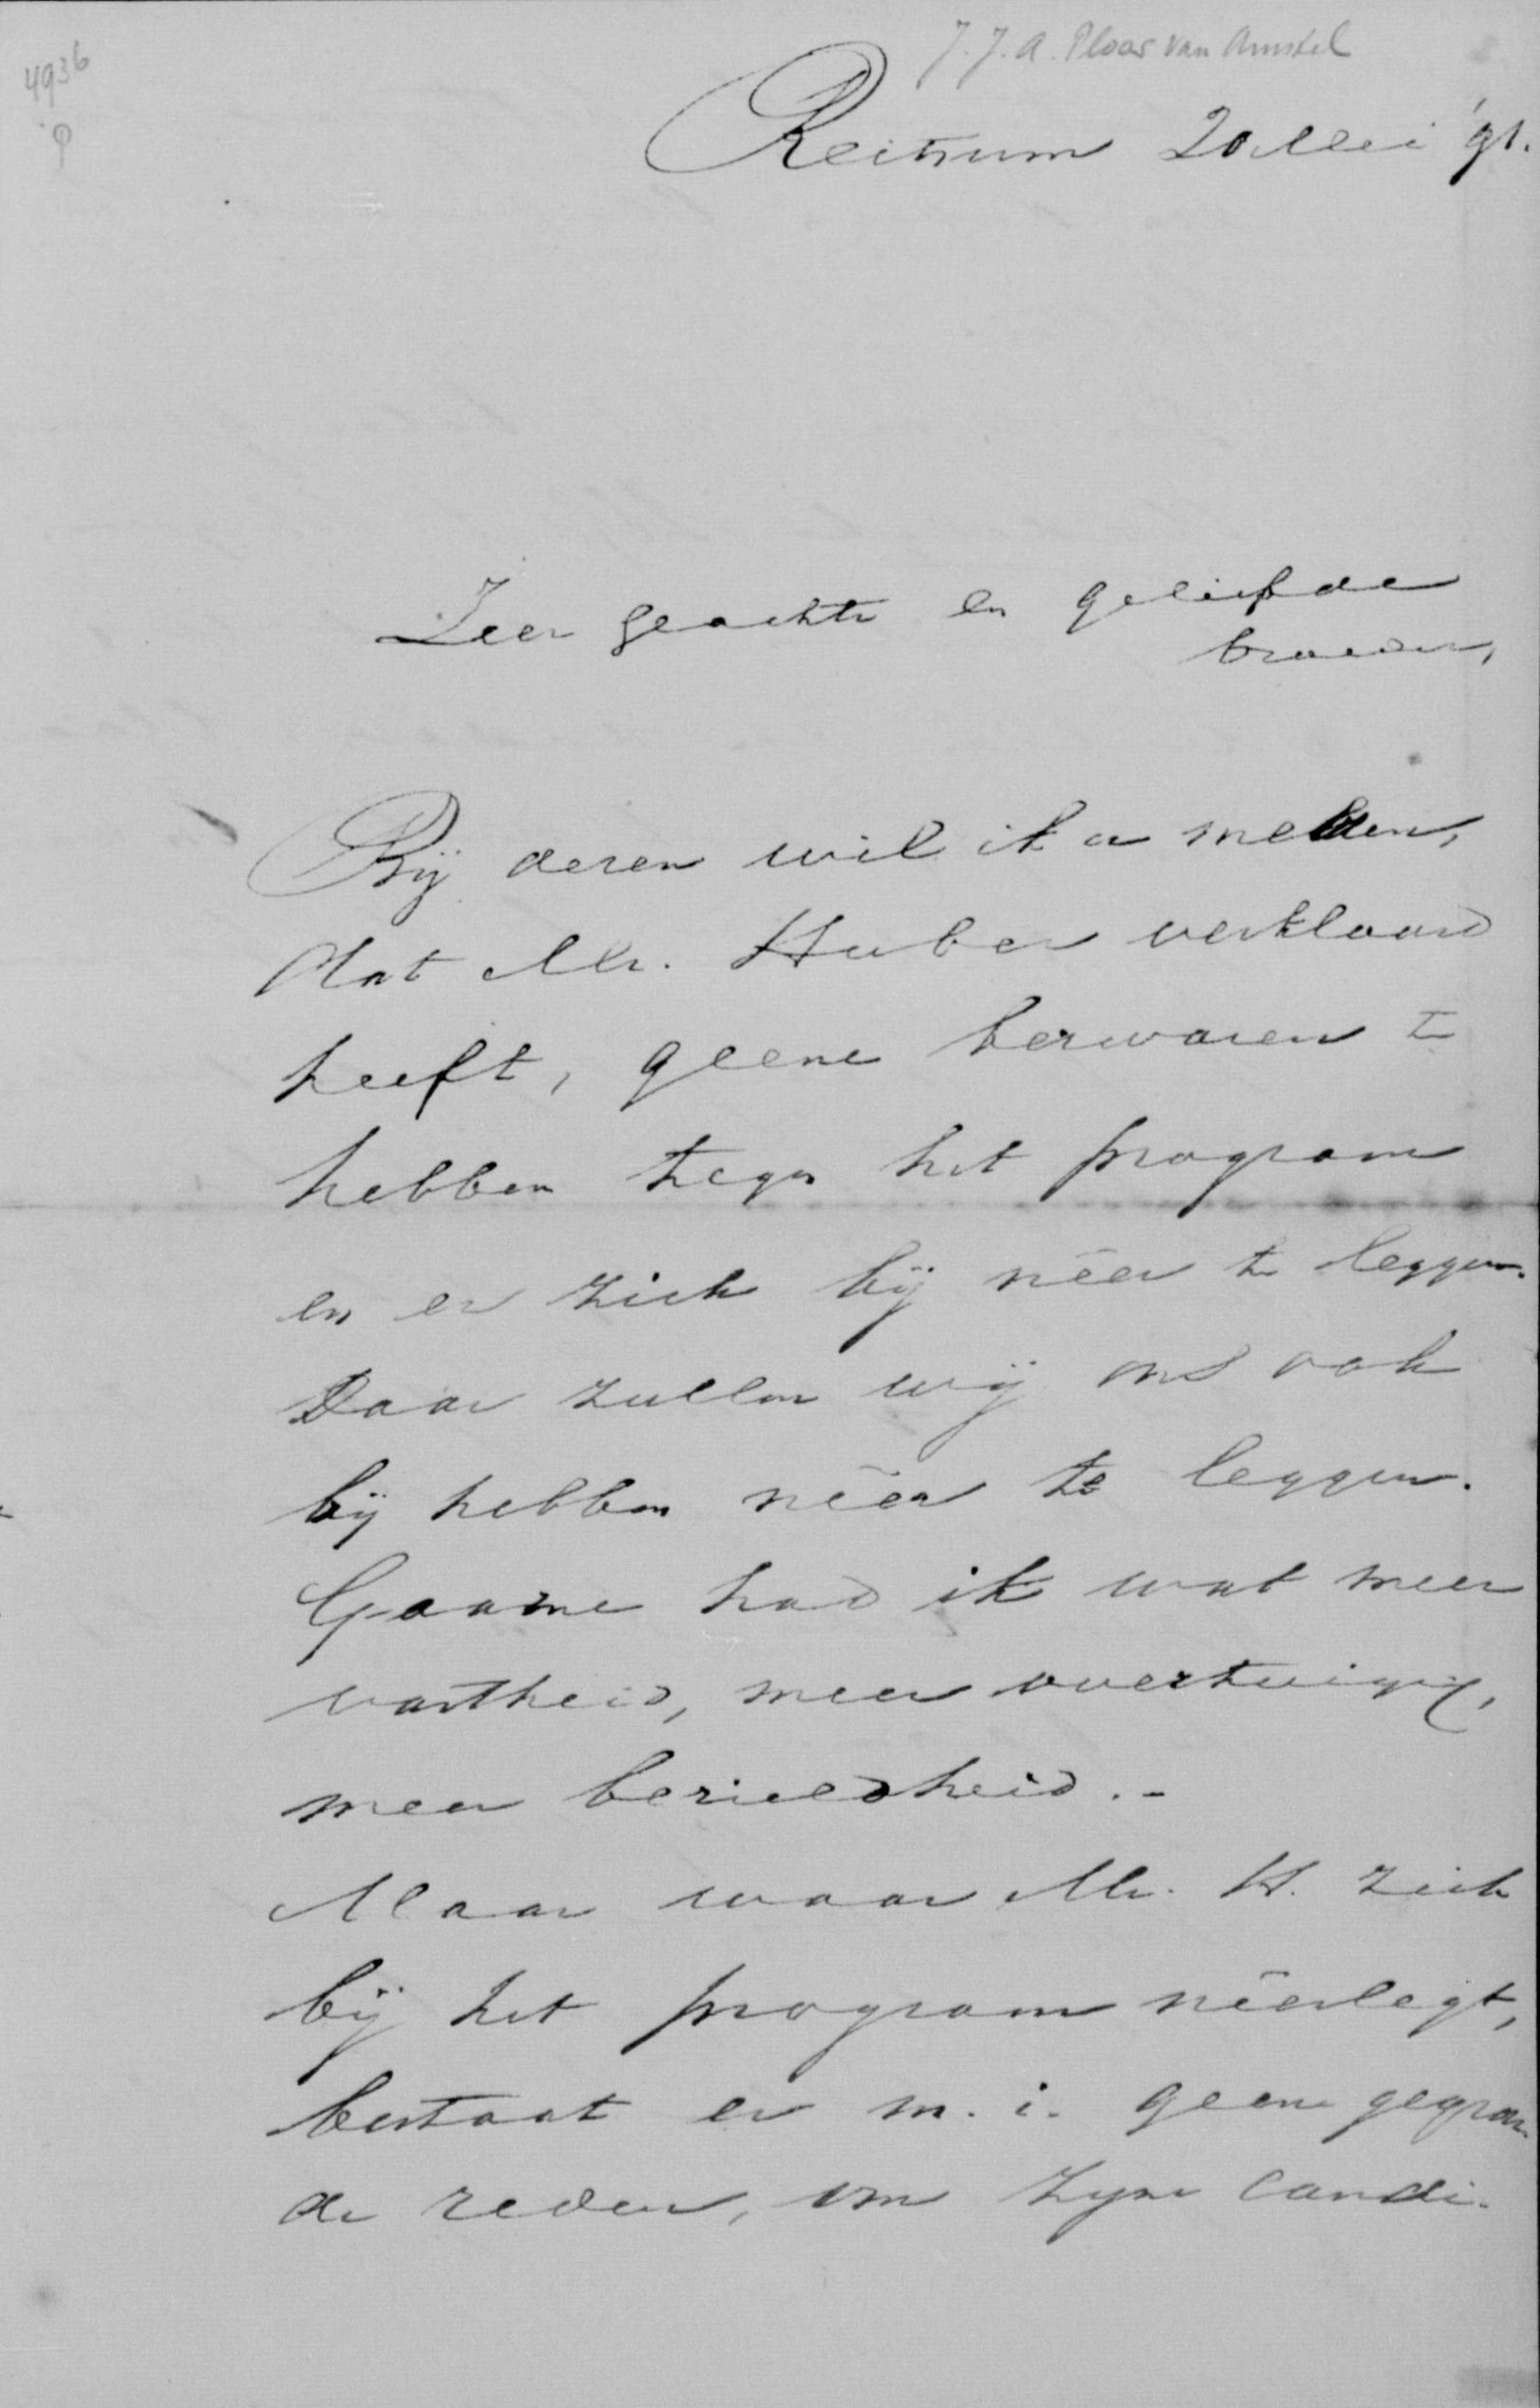 J. J. A. Ploos van Amstel
4936
P
Reitsum 20 Mei '91.
Zeer geachte en geliefde
broeder,
Bij dezen wil ik u melden,
dat Mr. Huber verklaard
heeft, geene bezwaren te
hebben tegen het program
en er zich bij néer te leggen.
Daar zullen wij ons ook
bij hebben néer te leggen.
Gaarne had ik wat meer
vastheid, meer overtuiging,
meer bezieldheid. -
Maar waar Mr. H. zich
bij het program néerlegt,
bestaat er m. i. geen gegron-
de reden, om zijne candi-